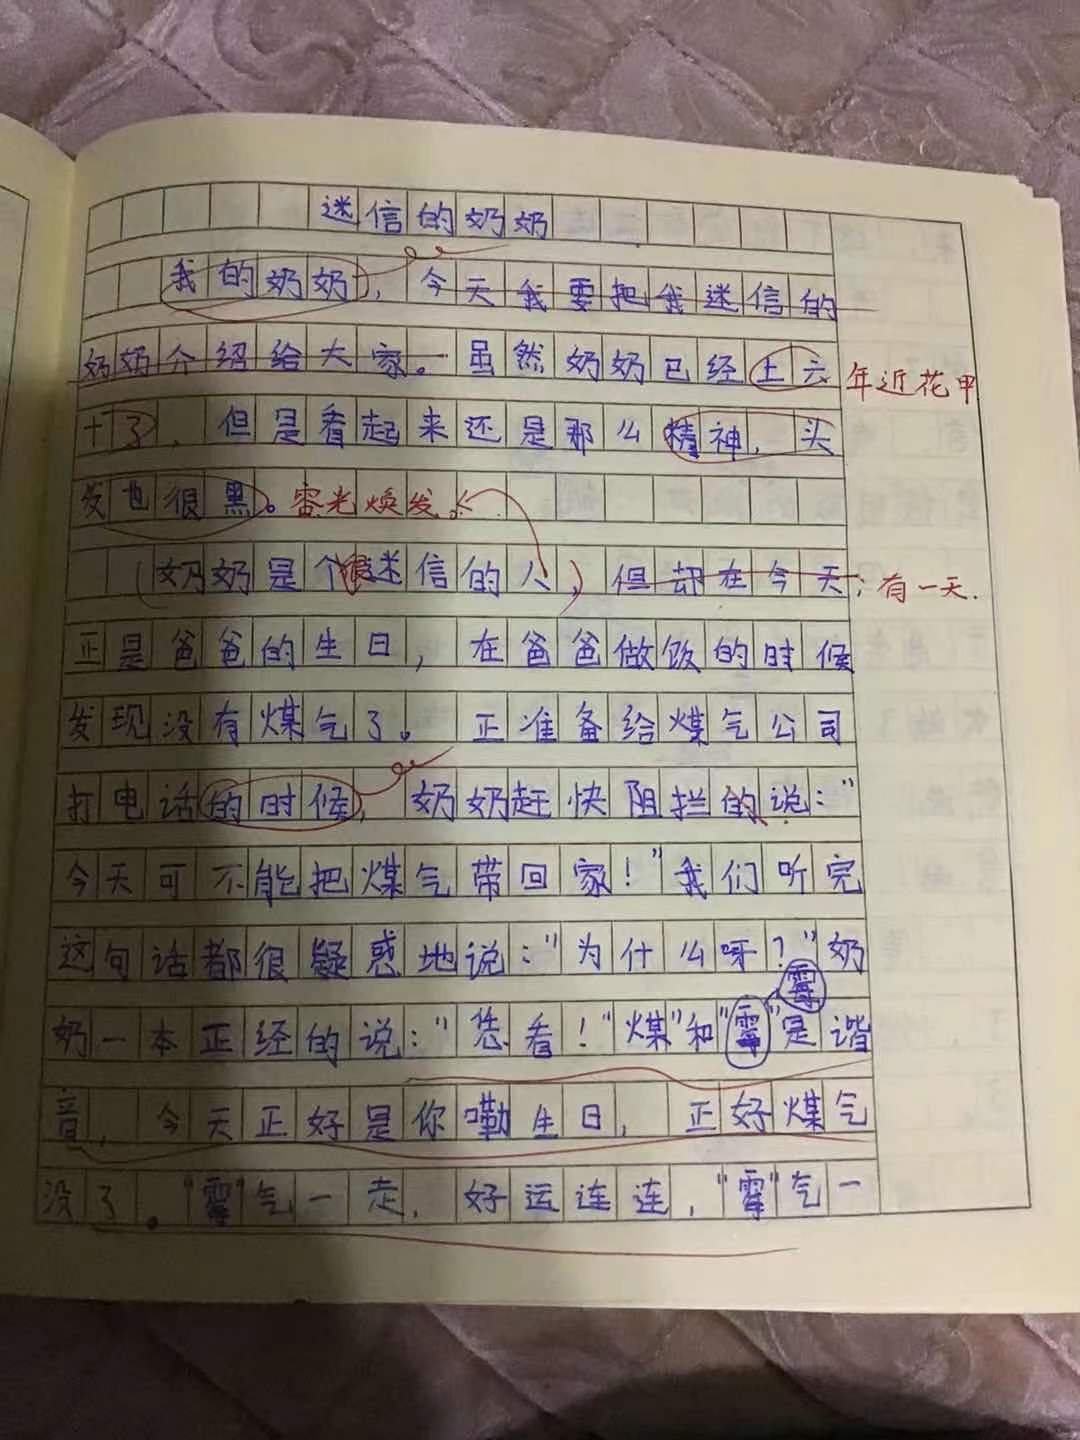 迷信的奶奶
我的奶奶，今天我要把我迷信的
奶奶介绍给大家。虽然奶奶已经上六
年近花甲
十了，但是看起来还是那么精神，头
发也很黑。容光焕发。
(奶奶是个很迷信的人，)但却在今天，
有一天.
正是爸爸的生日，在爸爸做饭的时候
发现没有煤气了。正准备给煤气公司
打电话的时候，奶奶赶快阻拦的说："
今天可不能把煤气带回家！"我们听完
这句话都很疑惑地说："为什么呀？"奶
霉
奶一本正经的说："恁看！"煤"和"霉"是谐
音，今天正好是你嘞生日，正好煤气
没了。"霉"气一走，好运连连，"霉"气一